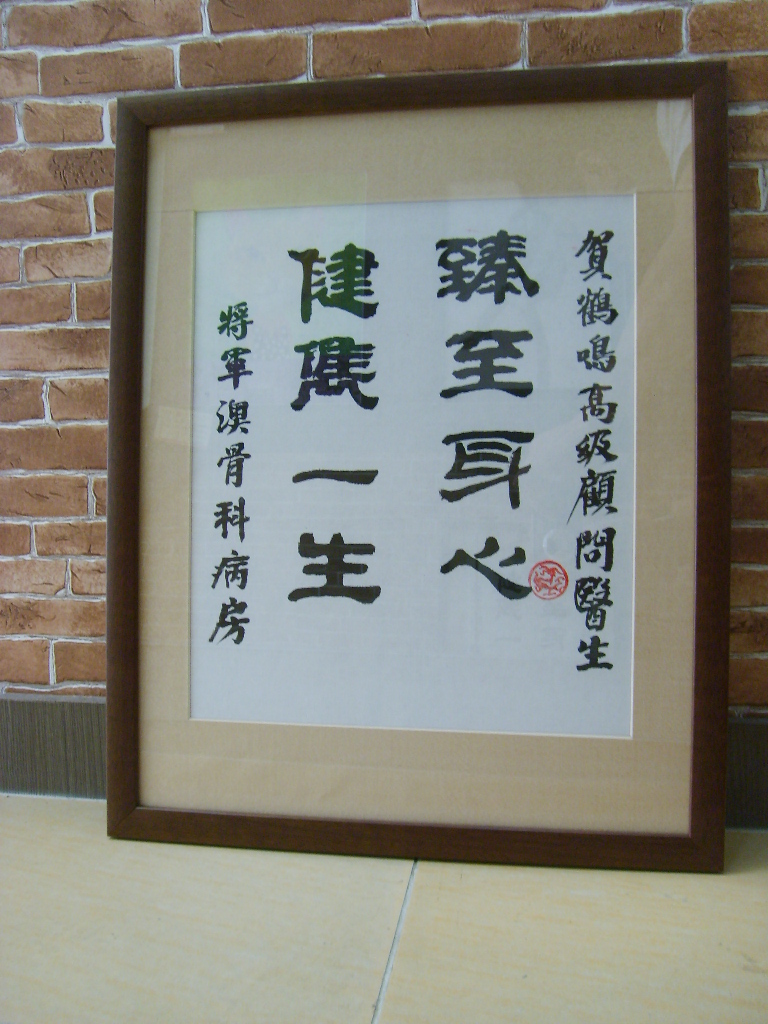 賀鶴鳴高級顧問醫生
臻至身心
健展一生
將軍澳骨科病房